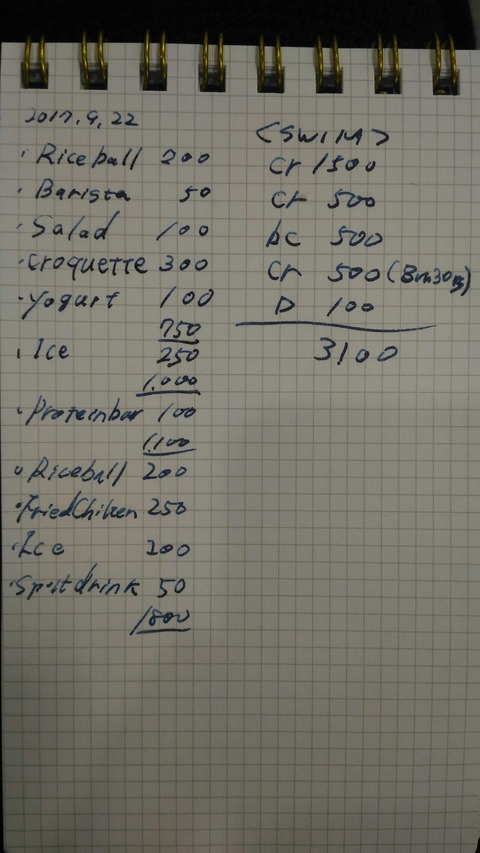 2017.9.22
・Riceball 200
・Barista 50
・Salad 100
・Croquette 300
・Yogurt 100
750
・Ice 250
1,000
・Proteinbar 100
1,100
・Riceball 200
・FriedChiken 250
・Ice 200
・Sportdrink 50
1800
<SWIM>
Cr 1500
Cr 500
bc 500
Cr 500
D 100
3100